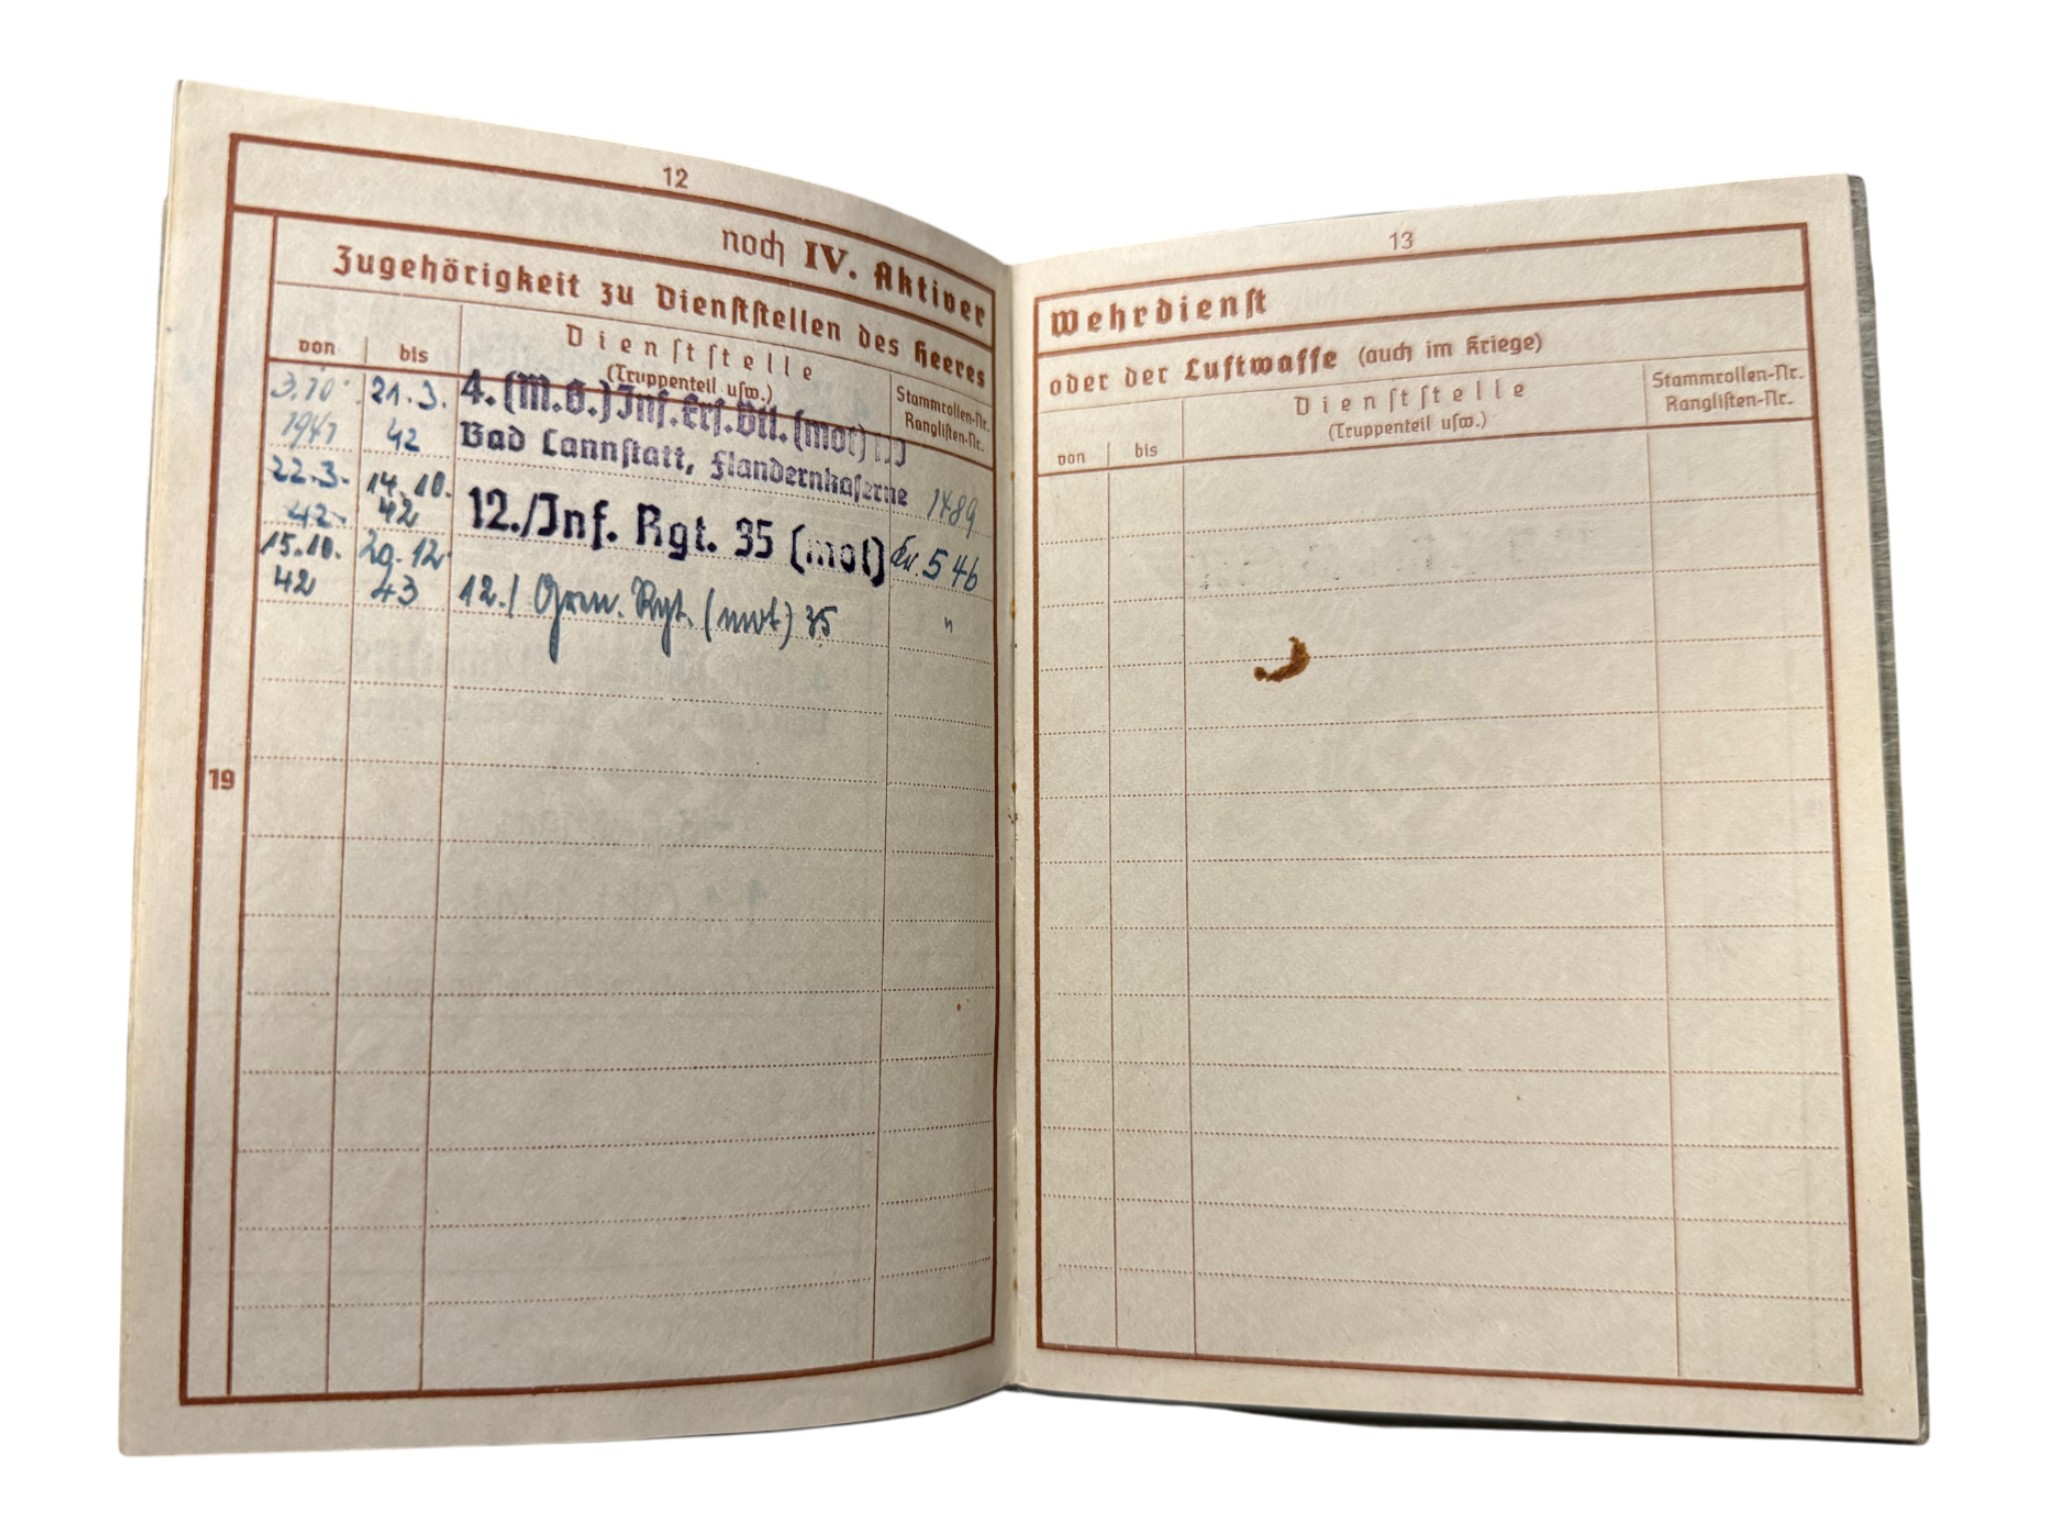 12
noch IV. Aktiver
Zugehörigkeit zu Dienststellen des Heeres
von
bis
Dienststelle
(Truppenteil usw.)
Stammrollen-Nr.
Ranglisten-Nr.
3.10.
1941
21.3.
42
4. (M.G.) Inf. Ers. Btl. (mot)
Bad Cannstatt, Flandernkaserne
1489
22.3.
42.
14.10.
42
12./Inf. Rgt. 35 (mot)
546
15.10.
42
29.12.
43
12./ Gren. Rgt. (mot) 35
"
19
13
Wehrdienst
oder der Luftwaffe (auch im Kriege)
von
bis
Dienststelle
(Truppenteil usw.)
Stammrollen-Nr.
Ranglisten-Nr.